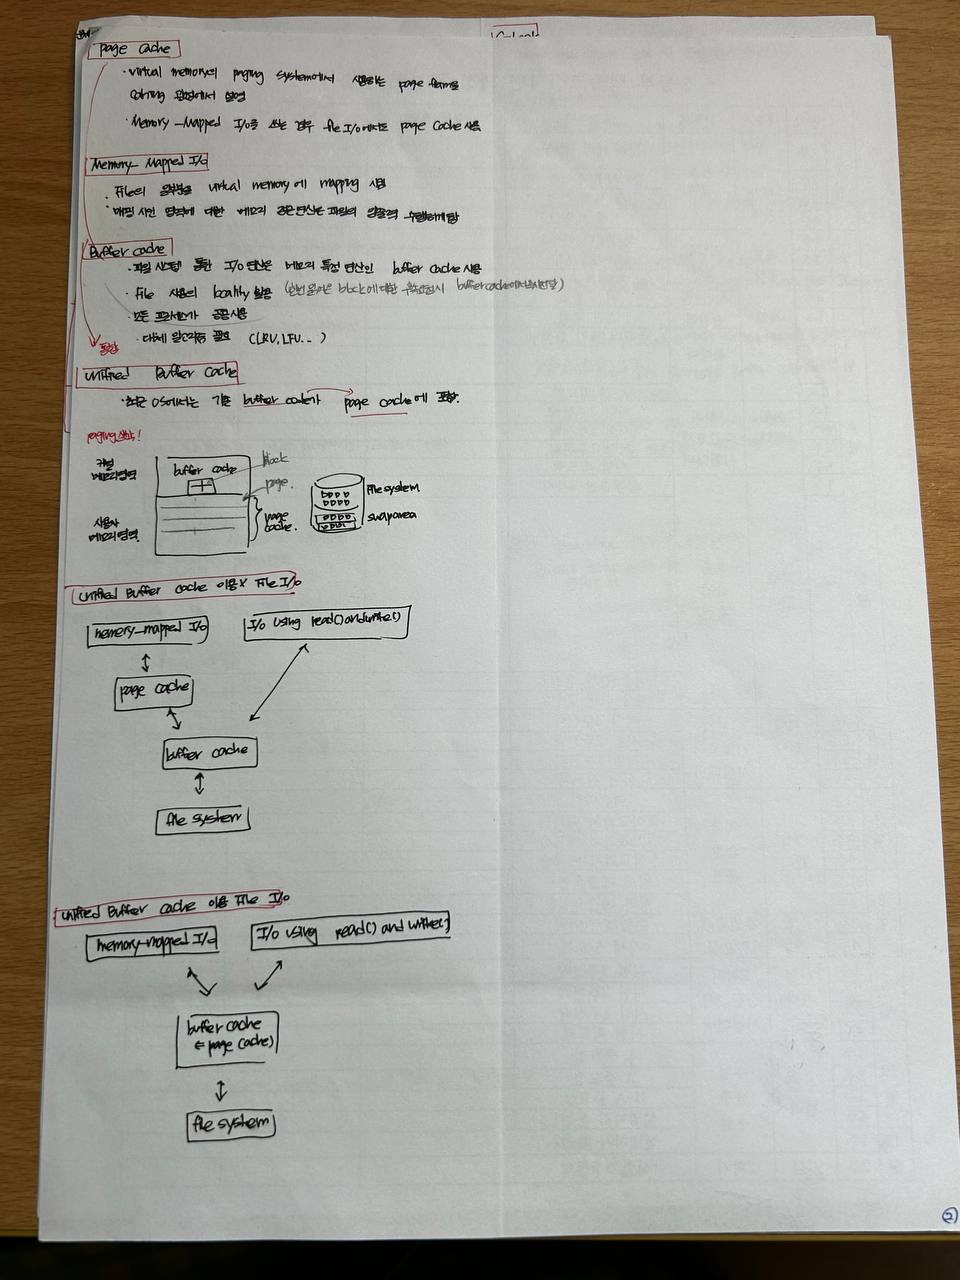 Page Cache
· virtual memory의 paging system에서 사용하는 page frame을
caching 관점에서 설명
· Memory-Mapped I/O를 쓰는 경우 file I/O에서도 page cache 사용
Memory-Mapped I/O
· File의 일부분을 virtual memory에 mapping 시킴
· 매핑 시킨 영역에 대한 메모리 접근 연산은 파일의 입출력 수행하게 함
Buffer cache
· 파일 시스템 통한 I/O 연산은 메모리 특정 영역인 buffer cache 사용
· File 사용의 locality 활용 (한번 읽어온 block에 대한 후속 요청시 buffer cache에서 즉시 전달)
· 모든 프로세스가 공용 사용
· 대체 알고리즘 필요 (LRU, LFU..)
통합
Unified Buffer Cache
· 최근 OS에서는 기존 buffer cache가 page cache에 포함.
커널
메모리영역
buffer cache
block
page.
사용자
메모리영역
page
cache.
File system
swap area
Unified Buffer cache 이용X File I/O
memory-mapped I/O
I/O using read() and write()
page cache
buffer cache
file system
Unified Buffer cache 이용 File I/O
memory-mapped I/O
I/O using read() and write()
buffer cache
← page cache)
file system
2